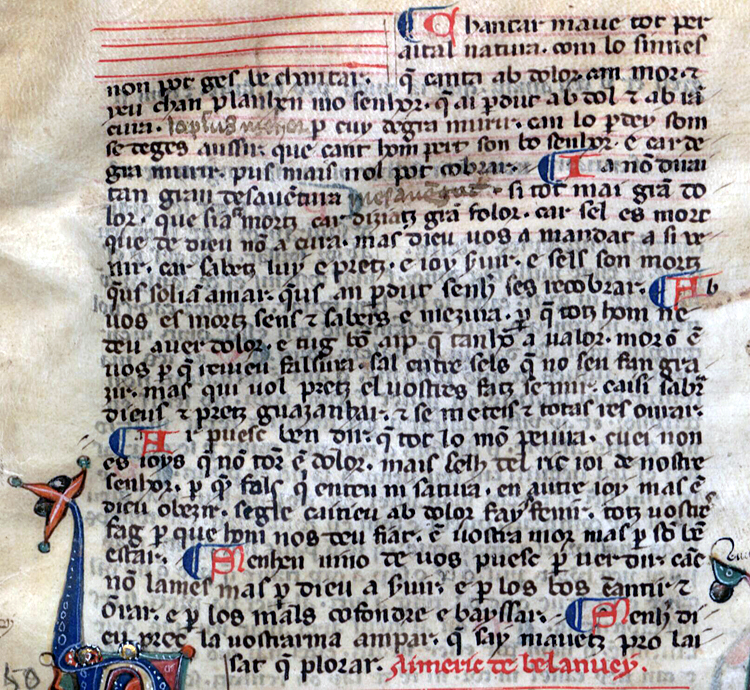 Chantar mave tot per
aital natura. com lo signes
non pot ges le chantar. q̄ canta ab dolor can mor. ⁊
yeu chan planhen mo senhor. q̄ ai pdut ab dol ⁊ ab ran
cura. p cuy degra murir. can lo pdey som
se deges aussir. que cant hom pert son bo senhor. e car de
gra murir. pus mais nol pot cobrar. Ia nō durai
tan gran desauētura si tot mai grā do
lor. que sia mortz car diziatz grā folor. car sel es mort
que de dieu nō a cura. mas dieu uos a mandat a si ve
nir. car sabetz luy e pretz. e ioy seruir. e sels son mortz
q̄us soliā amar. q̄us an pdut senh ses recobrar. Ab
uos es mortz sens ⁊ sabers e mezura. p q̄ totz hom ne
deu auer dolor. e tug bō aip q̄ tanhō a valor. morō ē
uos p q̄ reuieu falsura. sal entre sels q̄ no sen fan gra
zir. mas qui uol pretz el uostres fatz se mir. caisi sabr̄
dieus ⁊ pretz guazanhar. ⁊ se meteis ⁊ totas res onrar.
Ar puesc ben dir. q̄ tot lo mō peiura. cuei non
es ioys q̄ nō torē dolor. mais selh del ric ioi de nostre
senhor. p q̄ fols q̄ enten ni satura. en autre ioy mas ē
dieu obezir. segle caitieu ab dolor fay fenir. totz uostre
fag p que hom nos deu fiar. ē uostra mor mas p so bē
estar. Senhen nino de uos puesc p uer dir. cāc
nō lames mas p dieu a seruir. e p los bos eantir ⁊
ōrar. e p los mals cofondre e bayssar. Senh di
eu prec la uostrarma ampar. q̄ say mauetz pro lai
sat q̄ plorar. Aimeric de belanuey.
50